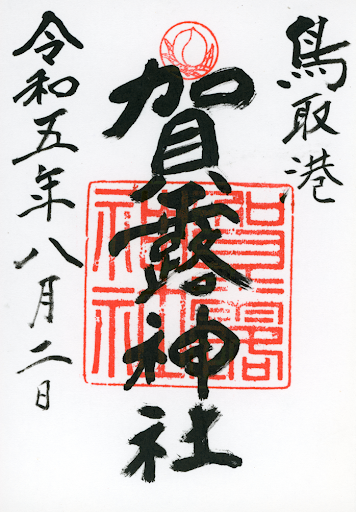 鳥取港
賀露神社
賀露
神社
令和五年八月二日